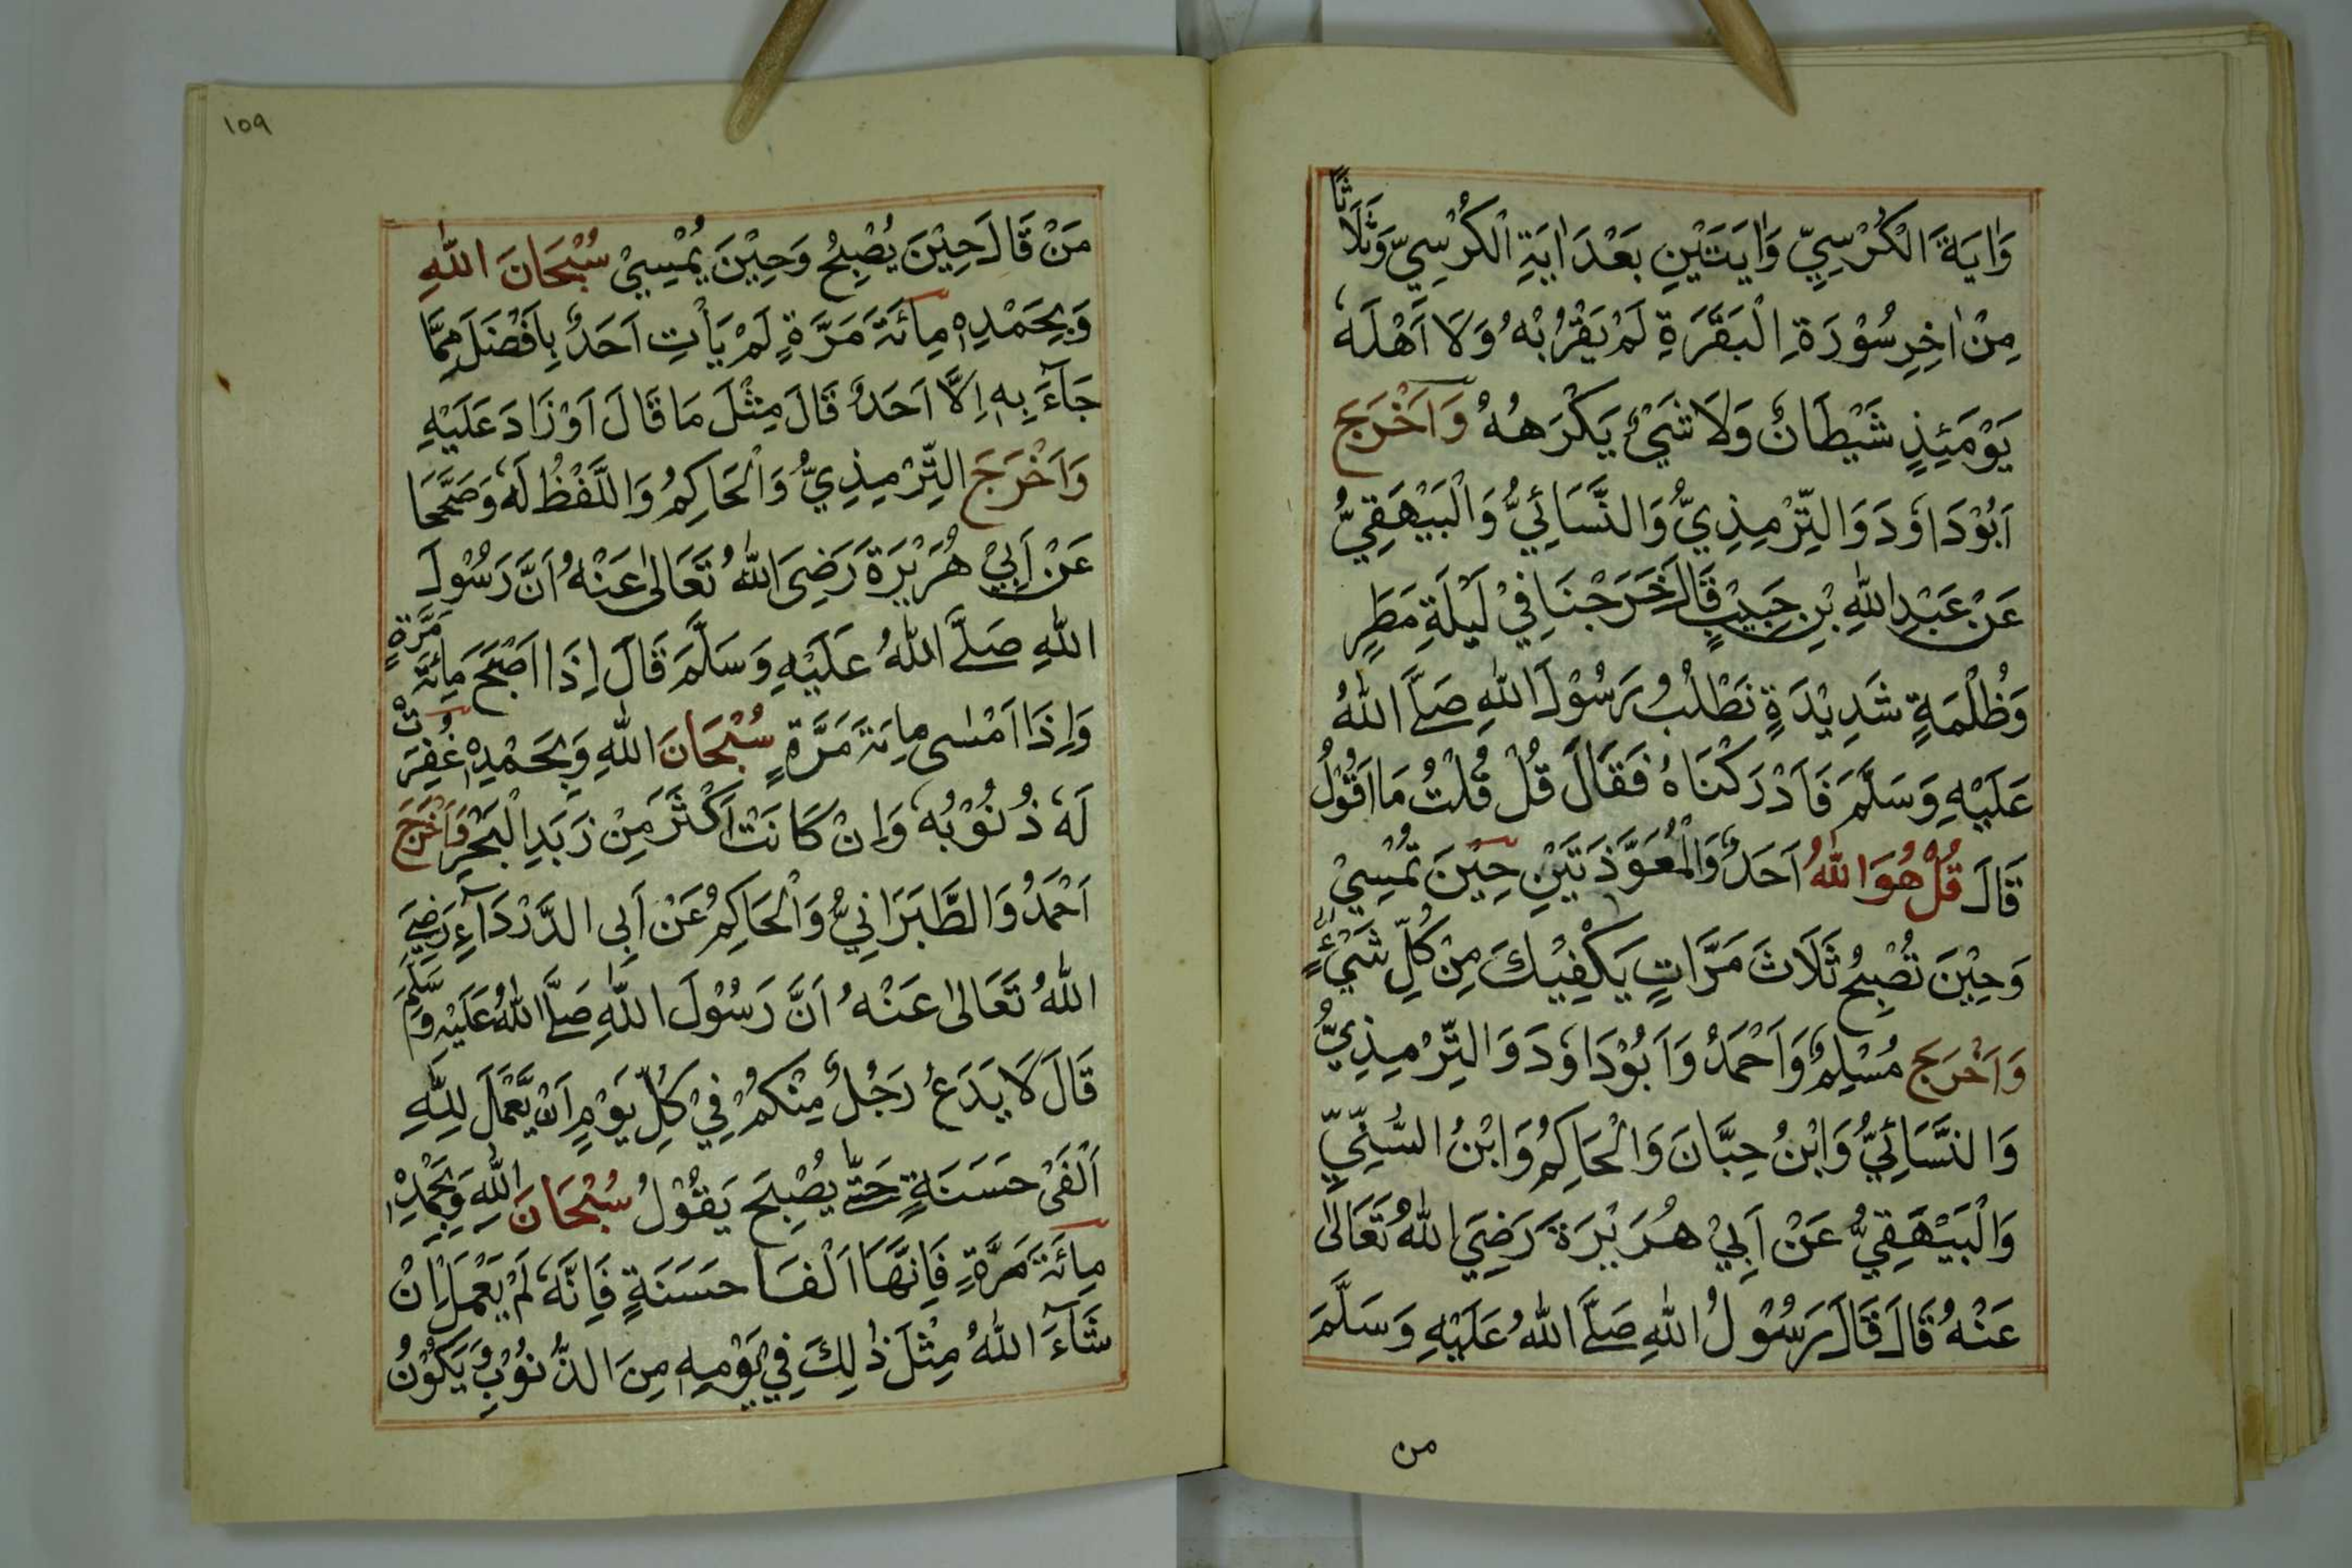 وَاٰيَةَ الْكُرْسِيِّ وَاٰيَتَيْنِ بَعْدَ اٰيَةِ الْكُرْسِيِّ وَثَلَاثًا
مِنْ اٰخِرِ سُوْرَةِ الْبَقَرَةِ لَمْ يَقْرُبْهُ وَلَا اَهْلَهٗ
يَوْمَئِذٍ شَيْطَانٌ وَلَا شَيْءٌ يَكْرَهُهُ وَاَخْرَجَ
اَبُوْدَاوٗدَ وَالتِّرْمِذِيُّ وَالنَّسَائِيُّ وَالْبَيْهَقِيُّ
عَنْ عَبْدِ اللّٰهِ بْنِ حَبِيْبٍ قَالَ خَرَجْنَا فِيْ لَيْلَةِ مَطَرٍ
وَظُلْمَةٍ شَدِيْدَةٍ نَطْلُبُ رَسُوْلَ اللّٰهِ صَلَّے اللّٰهُ
عَلَيْهِ وَسَلَّمَ فَاَدْرَكْنَاهُ فَقَالَ قُلْ قُلْتُ مَا اَقُوْلُ
قَالَ قُلْ هُوَ اللّٰهُ اَحَدٌ وَالْمُعَوَّذَتَيْنِ حِيْنَ تُمْسِيْ
وَحِيْنَ تُصْبِحُ ثَلَاثَ مَرَّاتٍ يَكْفِيْكَ مِنْ كُلِّ شَيْءٍ
وَاَخْرَجَ مُسْلِمٌ وَاَحْمَدُ وَاَبُوْدَاوٗدَ وَالتِّرْمِذِيُّ
وَالنَّسَائِيُّ وَابْنُ حِبَّانَ وَالْحَاكِمُ وَابْنُ السُّنِّيِّ
وَالْبَيْهَقِيُّ عَنْ اَبِيْ هُرَيْرَةَ رَضِيَ اللّٰهُ تَعَالٰى
عَنْهُ قَالَ قَالَ رَسُوْلُ اللّٰهِ صَلَّے اللّٰهُ عَلَيْهِ وَسَلَّمَ
من
١٥٩
مَنْ قَالَ حِيْنَ يُصْبِحُ وَحِيْنَ يُمْسِيْ سُبْحَانَ اللّٰهِ
وَبِحَمْدِهٖ مِائَةَ مَرَّةٍ لَمْ يَأْتِ اَحَدٌ بِاَفْضَلَ مِمَّا
جَآءَ بِهٖ اِلَّا اَحَدٌ قَالَ مِثْلَ مَا قَالَ اَوْ زَادَ عَلَيْهِ
وَاَخْرَجَ التِّرْمِذِيُّ وَالْحَاكِمُ وَاللَّفْظُ لَهٗ وَصَحَّحَا
عَنْ اَبِيْ هُرَيْرَةَ رَضِيَ اللّٰهُ تَعَالٰى عَنْهُ اَنَّ رَسُوْلَ
اللّٰهِ صَلَّے اللّٰهُ عَلَيْهِ وَسَلَّمَ قَالَ اِذَا اَصْبَحَ مِائَةَ مَرَّةٍ
وَاِذَا اَمْسٰى مِائَةَ مَرَّةٍ سُبْحَانَ اللّٰهِ وَبِحَمْدِهٖ غُفِرَتْ
لَهٗ ذُنُوْبُهٗ وَاِنْ كَانَتْ اَكْثَرَ مِنْ زَبَدِ الْبَحْرِ وَاَخْرَجَ
اَحْمَدُ وَالطَّبَرَانِيُّ وَالْحَاكِمُ عَنْ اَبِى الدَّرْدَآءِ رَضِيَ
اللّٰهُ تَعَالٰى عَنْهُ اَنَّ رَسُوْلَ اللّٰهِ صَلَّے اللّٰهُ عَلَيْهِ وَسَلَّمَ
قَالَ لَا يَدَعُ رَجُلٌ مِنْكُمْ فِيْ كُلِّ يَوْمٍ اَنْ يَّعْمَلَ لِلّٰهِ
اَلْفَىْ حَسَنَةٍ حَتّٰے يُصْبِحَ يَقُوْلُ سُبْحَانَ اللّٰهِ وَبِحَمْدِهٖ
مِائَةَ مَرَّةٍ فَاِنَّهَا اَلْفَا حَسَنَةٍ فَاِنَّهٗ لَمْ يَعْمَلْ اِنْ
شَآءَ اللّٰهُ مِثْلَ ذٰلِكَ فِيْ يَوْمِهٖ مِنَ الذُّنُوْبِ وَيَكُوْنُ